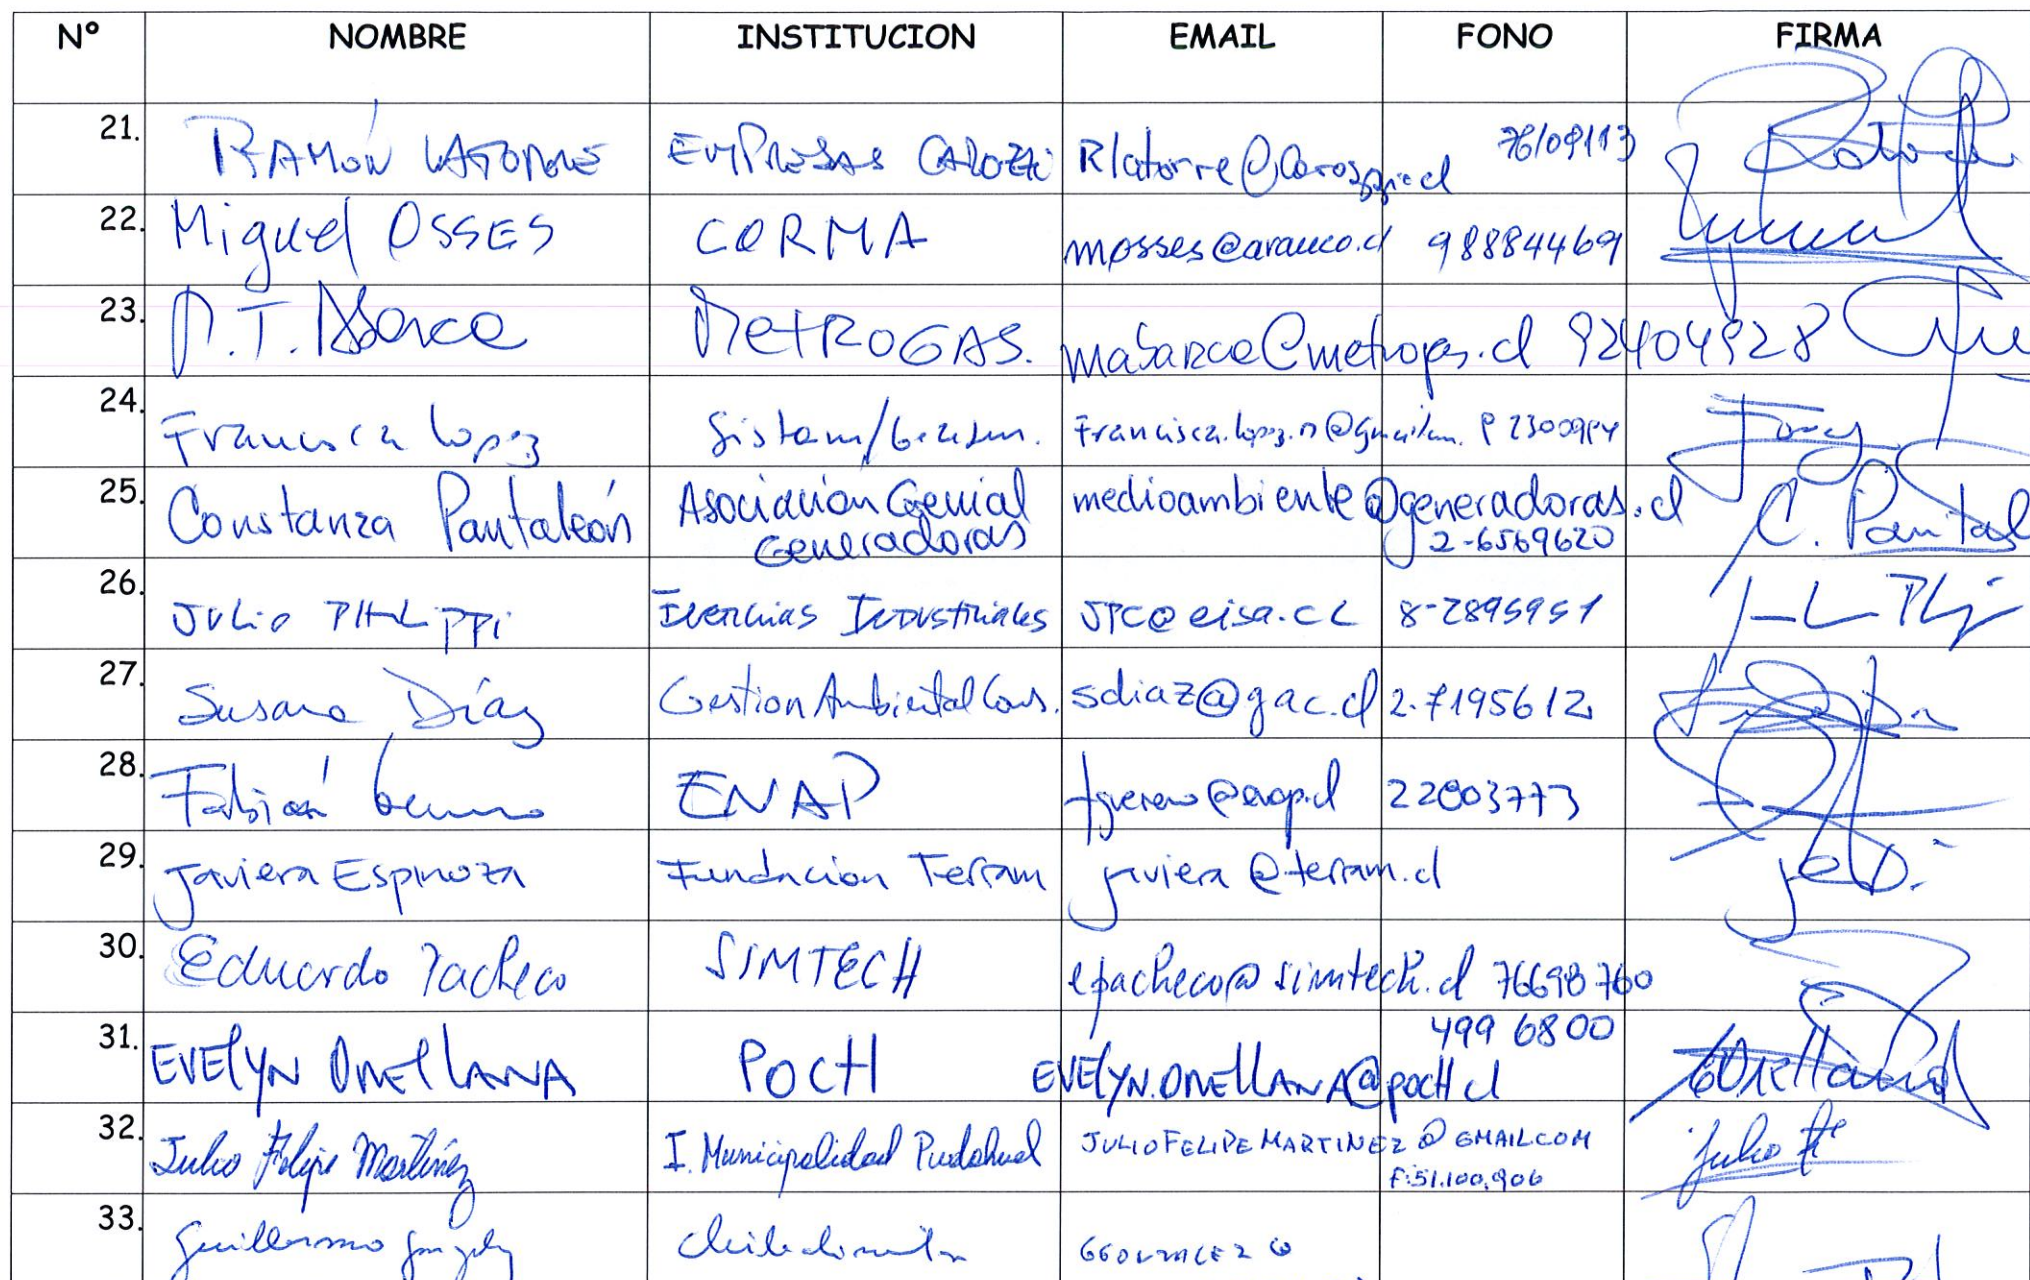 Nº NOMBRE INSTITUCION EMAIL FONO FIRMA
21. RAMÓN LATORRE EMPRESAS CAROZZI Rlatorre@Carozzi.cl 76109113
22. Miguel OSSES CORMA mosses@arauco.cl 98884469
23. M.T. Abarca METROGAS. mabarca@metrogas.cl 92404928
24. Francisca Lopez Francisca.lopez.n@gmail.com.
25. Constanza Pantaleón Asociación Gremial Generadoras medioambiente@generadoras.cl 2-6569620 C. Pantal
26. JULIO PHILIPPI Energias Industriales JPC@eisa.CL 8-2895951
27. Susana Díaz Gestion Ambiental Cons. sdiaz@gac.cl 2.7195612
28. Fabián Guerrero ENAP fguerrero@enap.cl 22803773
29. Javiera Espinoza Fundacion Terram javiera@terram.cl
30. Eduardo Pacheco SIMTECH epacheco@simtech.cl 76698760
31. EVELYN ORELLANA POCH EVELYN.ORELLANA@poch.cl 499 6800 EOrellana
32. Julio Felipe Martínez I. Municipalidad Pudahuel JULIOFELIPEMARTINEZ@GMAIL.COM F:51.100.906 Julio F
33. Guillermo González GGONZALEZ@